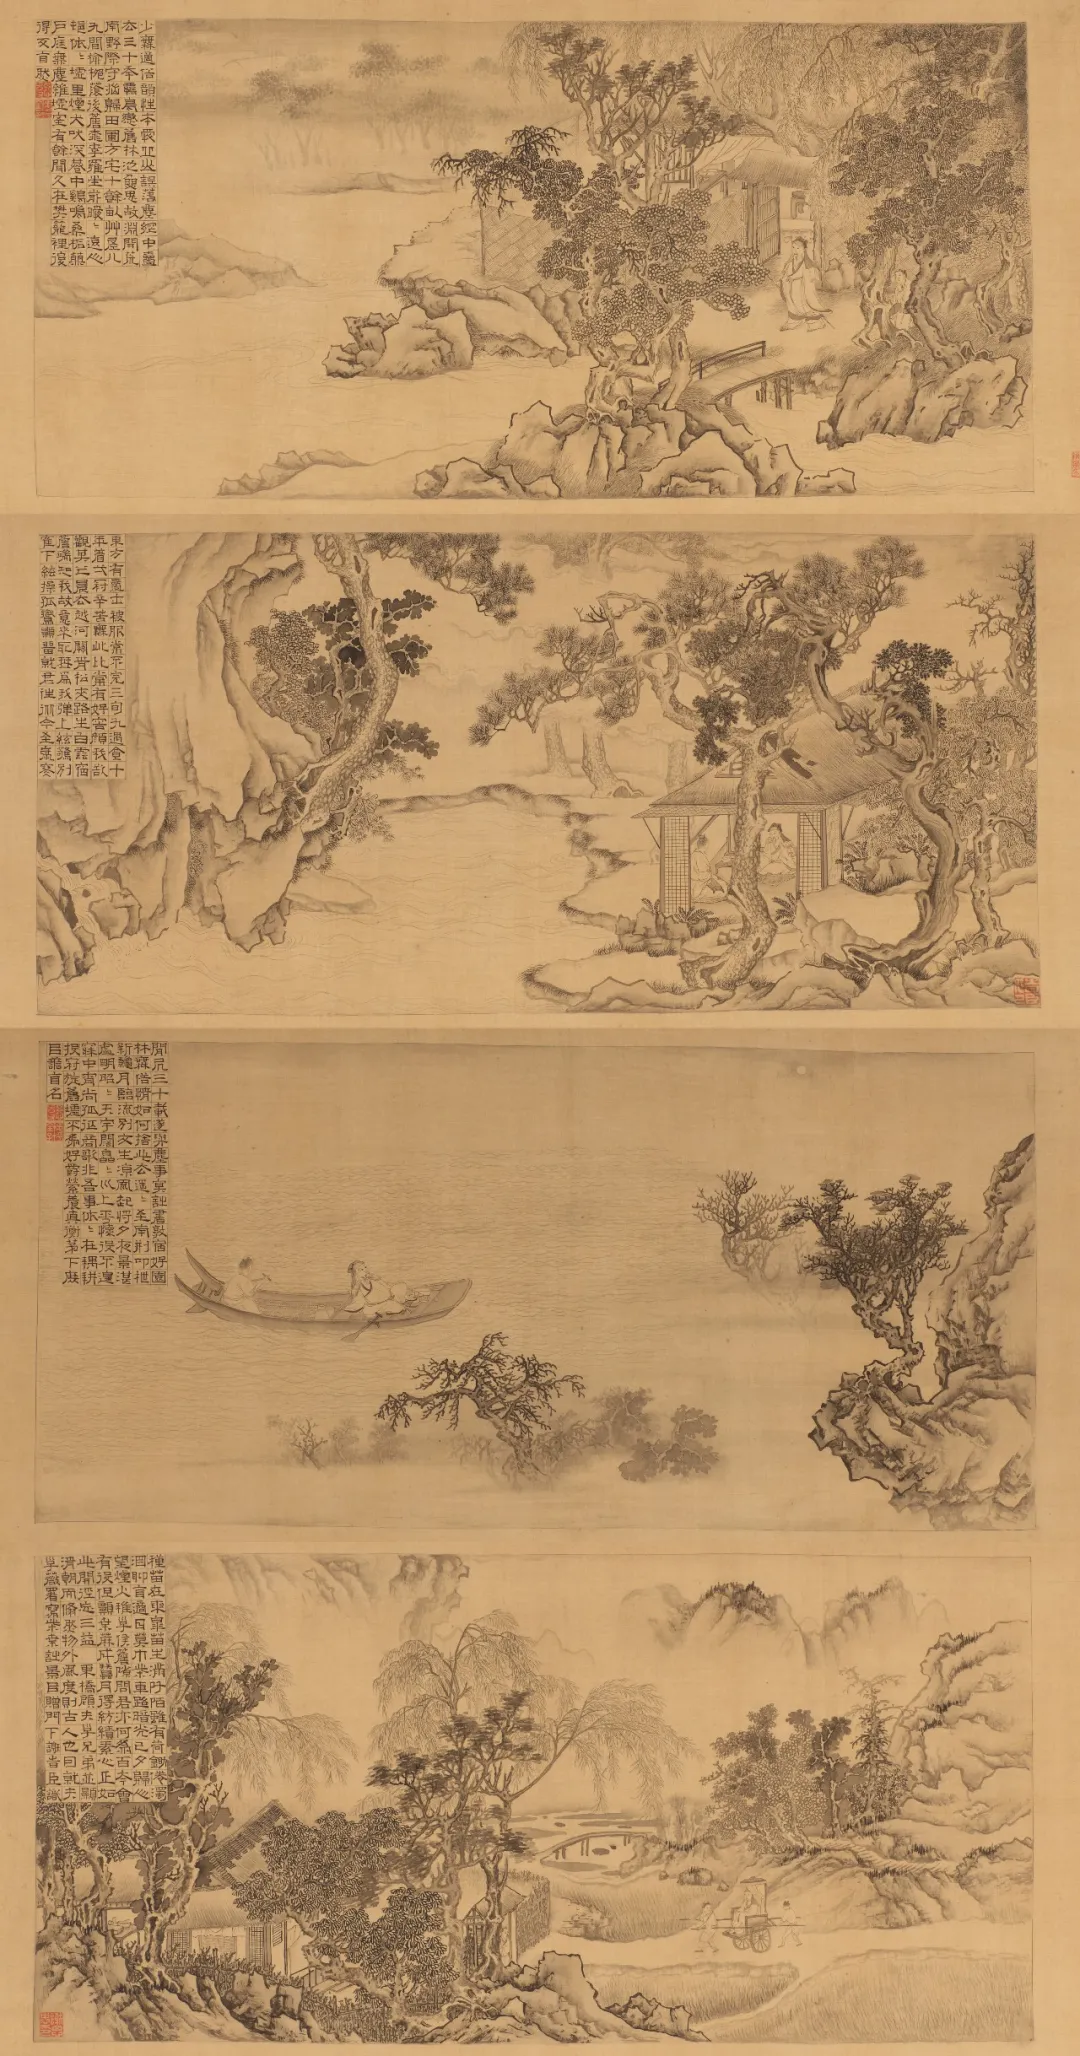 少無適俗韻性本愛丘山誤落塵網中一
去三十年羈鳥戀舊林池魚思故淵開荒
南野際守拙歸田園方宅十餘畝艸屋八
九間榆柳蔭後簷桃李羅堂前曖〻遠人
村依〻墟里煙犬吠深巷中鷄鳴桑樹巔
戶庭無塵雜虛室有餘閒久在樊籠裡復
得反自然
東方有一士被服常不完三旬九遇食十
年着一冠辛苦無此比常有好容顏我欲
觀其人晨去越河關青松夾路生白雲宿
簷端知我故意來取琴為我彈上絃驚別
隺下絃操孤鸞願留就君住從今至歲寒
閒居三十載遂與塵事冥詩書敦宿好園
林無俗情如何捨此去遙〻至南荊叩枻
新秋月臨流別友生涼風起將夕夜景湛
虛明昭〻天宇闊皛〻川上平懷役不遑
寐中宵尚孤征商歌非吾事依〻在耦耕
投冠旋舊墟不為好爵縈養真衡茅下庶
㠯善自名
種苗在東皋苗生滿阡陌雖有荷鋤倦濁
酒聊自適日莫巾柴車路暗光已夕歸人
望煙火稚子候簷隙問君亦何為百年會
有役但願桑麻成蠶月得紡績素心正如
此開徑望三益 東橋顧夫子兄弟並顯
清朝而翛然物外風度則古人也因就夫
齋署寫柴桑詩景目贈門下